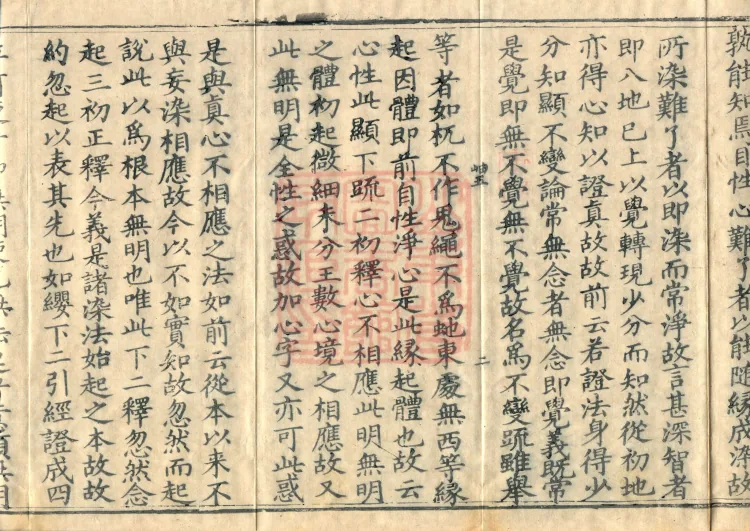 孰能知焉自性心難了者以能隨緣成染故
所染難了者以即染而常淨故言甚深智者
即八地已上以覺轉現少分而知然從初地
亦得心知以證眞故故前云若證法身得少
分知顯不變論常無念者無念即覺義既常
是覺即無不覺無不覺故名爲不變䟽雖舉
岫五 二
等者如杌不作鬼繩不爲虵東處無西等緣
起因體即前自性淨心是此緣起體也故云
心性此顯下䟽二初釋心不相應此明無明
之體初起微細未分王數心境之相應故又
此無明是全性之惑故加心字又亦可此惑
是與眞心不相應之法如前云從本以来不
與妄染相應故今以不如實知故忽然而起
說此以爲根本無明也唯此下二釋忽然念
起三初正釋今義是諸染法始起之本故故
約忽起以表其先也如纓下二引經證成四